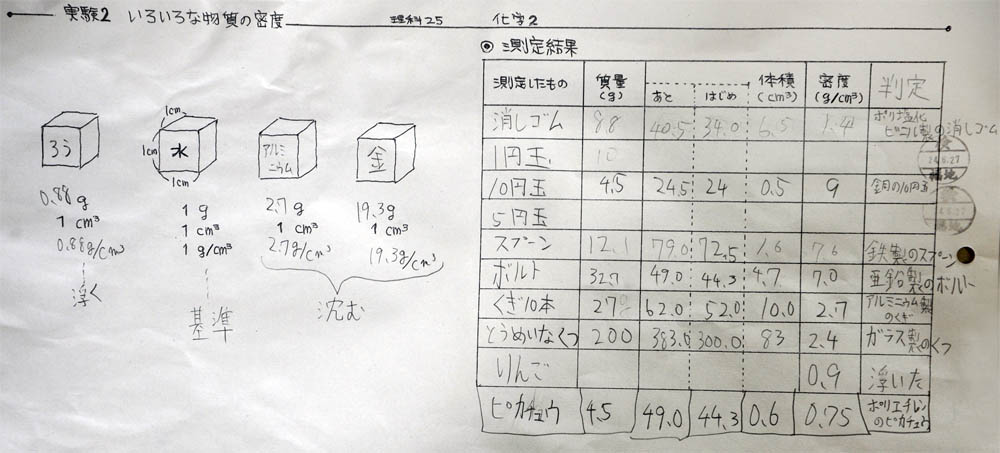 実験2 いろいろな物質の密度 理科25 化学2
◎ 測定結果
測定したもの 質量(g) あと はじめ 体積(cm³) 密度(g/cm³) 判定
消しゴム 8.8 40.5 34.0 6.5 1.4 ポリ塩化ビニル製の消しゴム
1円玉 10
10円玉 4.5 24.5 24 0.5 9
5円玉
スプーン 12.1 79.0 72.5 1.6 7.6 鉄製のスプーン
ボルト 32.7 49.0 44.3 4.7 7.0 亜鉛製のボルト
くぎ10本 27 62.0 52.0 10.0 2.7 アルミニウム製のくぎ
とうめいなくつ 200 383.0 300.0 83 2.4 ガラス製のくつ
りんご 0.9 浮いた
ピカチュウ 4.5 49.0 44.3 0.6 0.75 ポリエチレンのピカチュウ
1cm
1cm
1cm
ろう 水 アルミニウム 金
0.88g 1g 2.7g 19.3g
1cm³ 1cm³ 1cm³ 1cm³
0.88g/cm³ 1g/cm³ 2.7g/cm³ 19.3g/cm³
浮く 基準 沈む